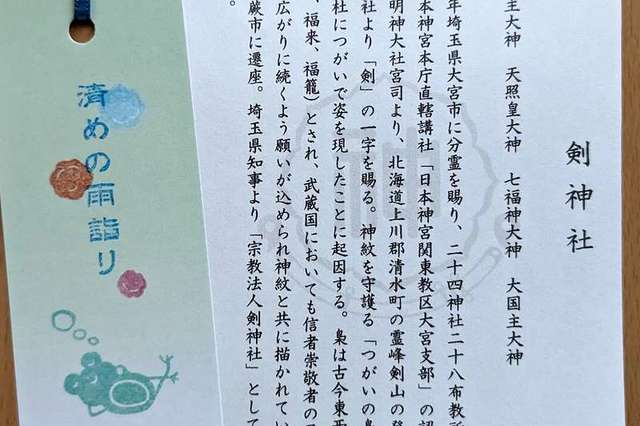 剣神社
主大神　天照皇大神　七福神大神　大国主大神
年埼玉県大宮市に分霊を賜り、二十四神社二十八布教所
本神宮本庁直轄講社「日本神宮関東教区大宮支部」の認
明神大社宮司より、北海道上川郡清水町の霊峰剣山の発
社より「剣」の一字を賜る。神紋を守護る「つがいの梟
社につがいで姿を現したことに起因する。梟は古今東西
、福来、福籠）とされ、武蔵国においても信者崇敬者の
広がりに続くよう願いが込められ神紋と共に描かれてい
蕨市に遷座。埼玉県知事より「宗教法人剣神社」として
。
済めの雨詣り